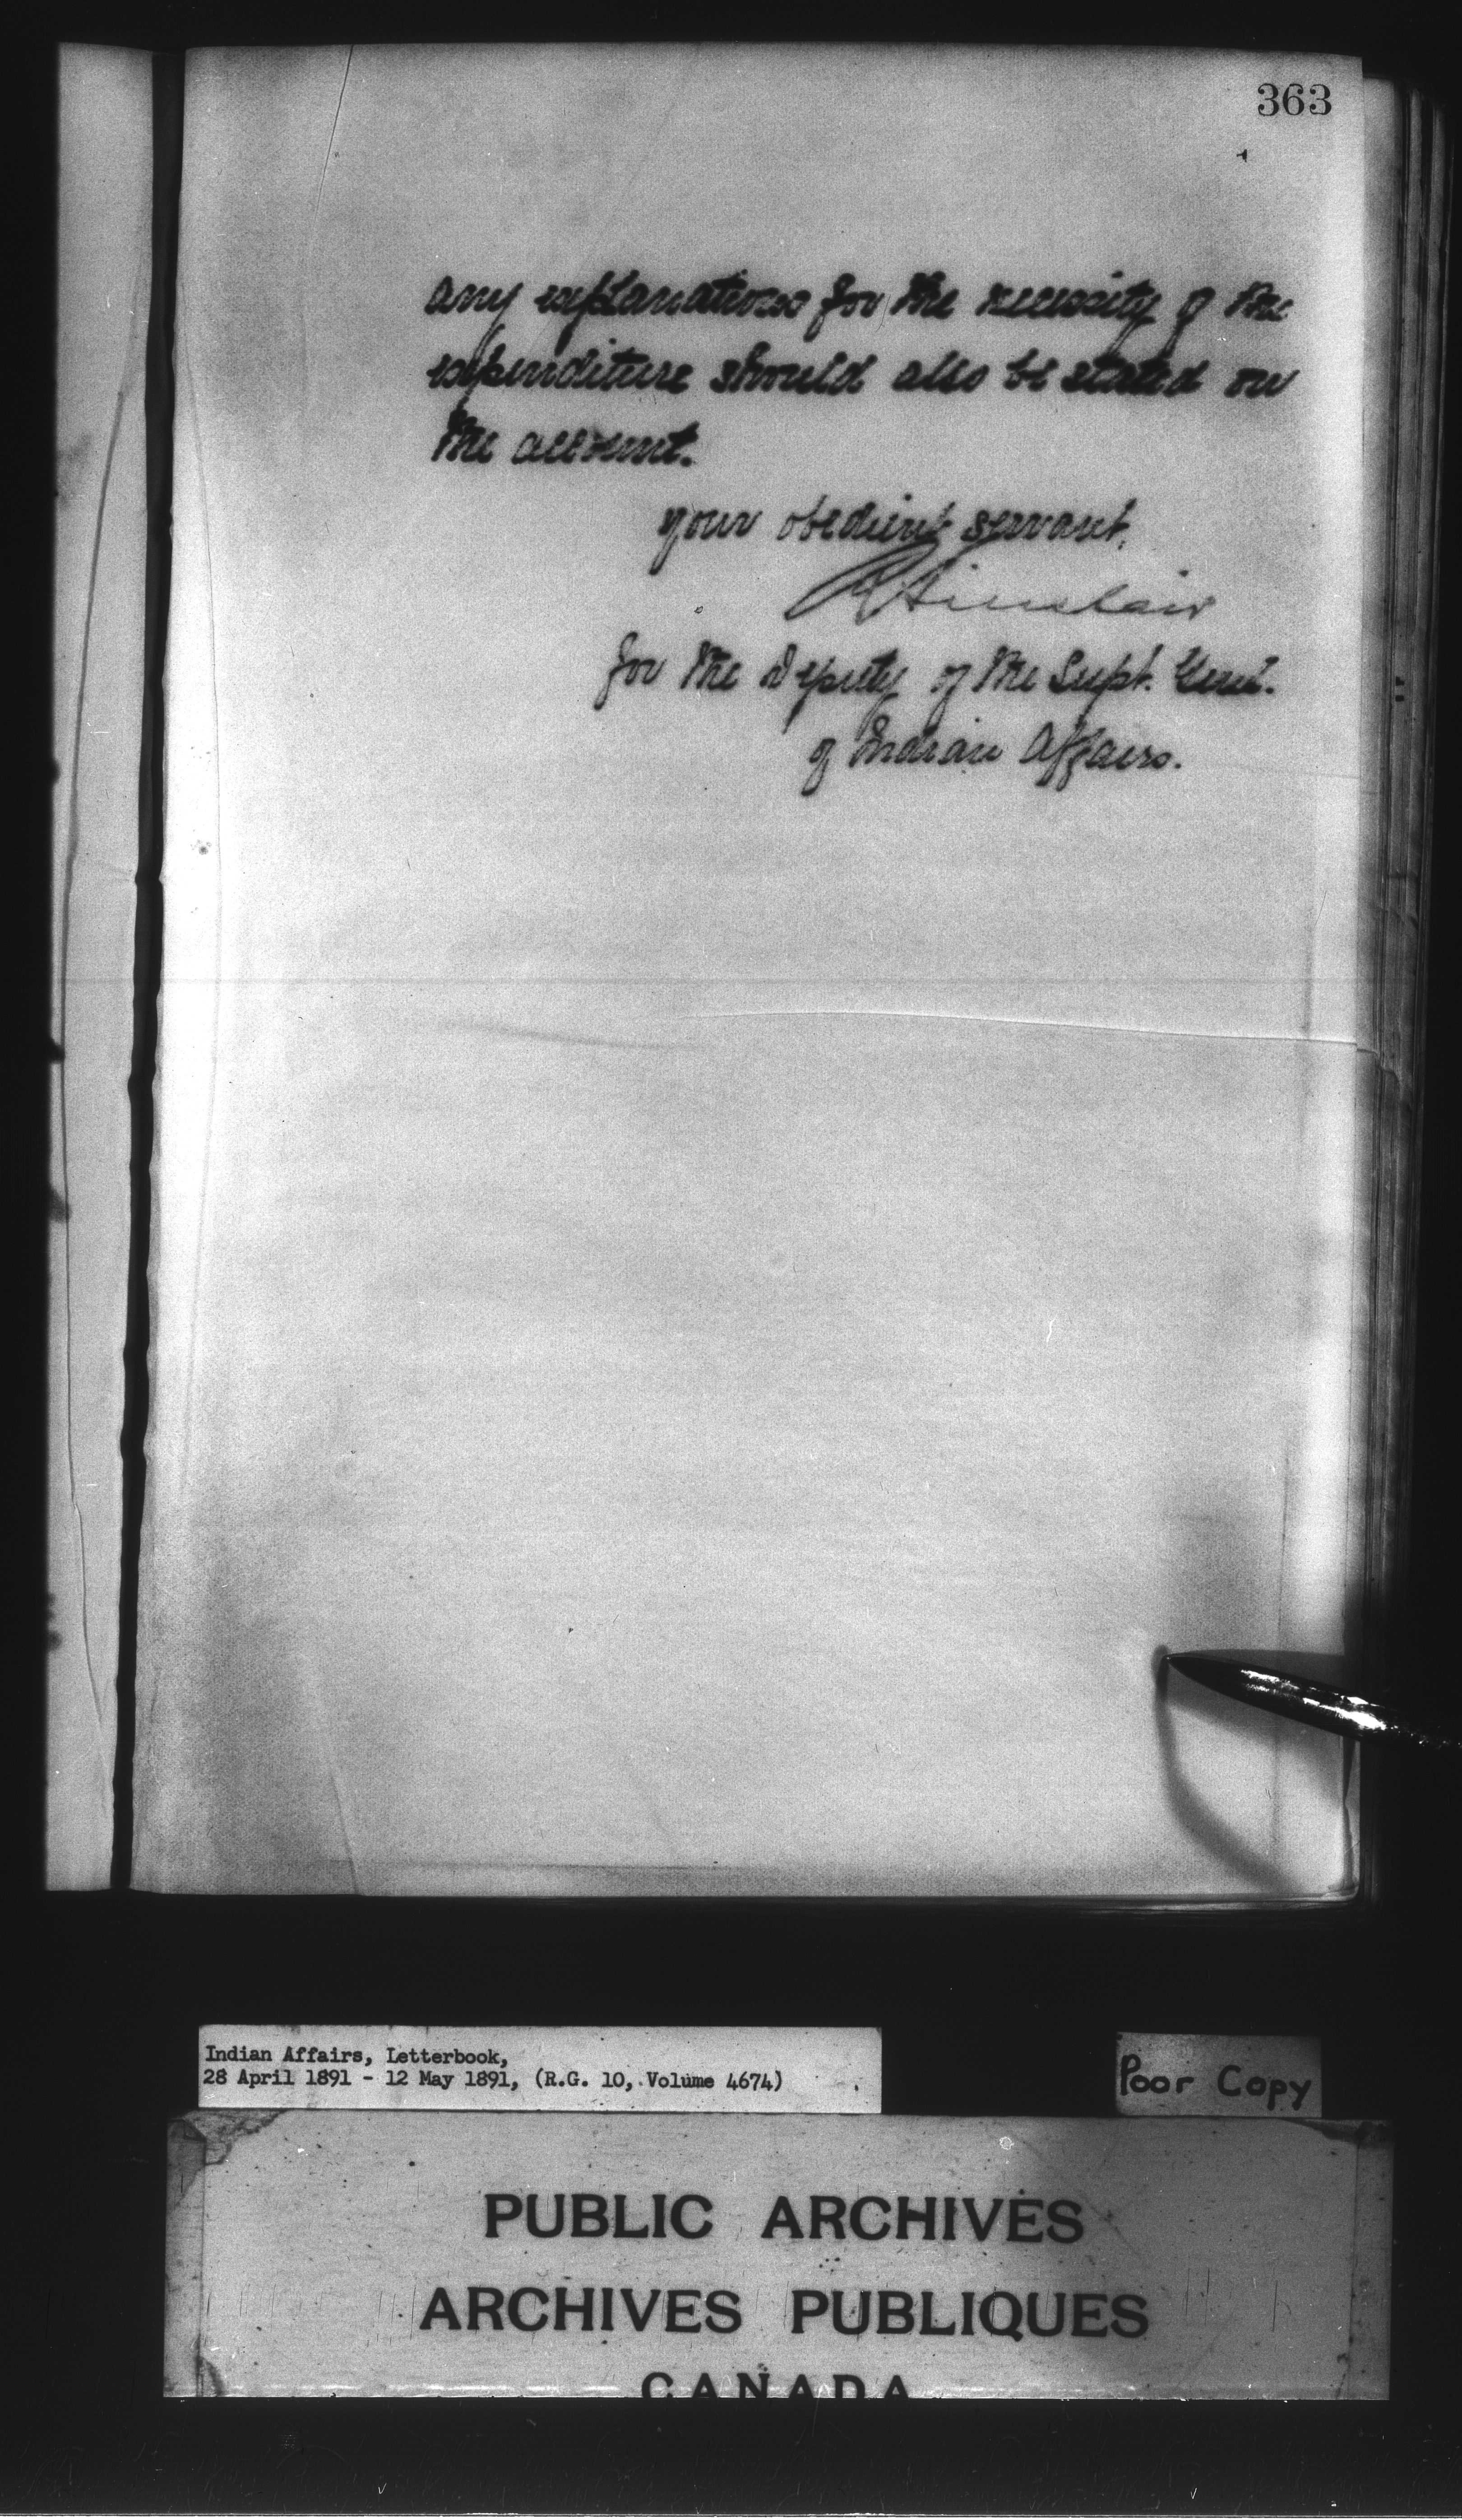 363
any explanations for the necessity of the
expenditure should also be stated on
the account.
your obedient servant,
R Sinclair
for the Deputy of the Supt. Genl.
of Indian Affairs.
Indian Affairs, Letterbook,
28 April 1891 - 12 May 1891, (R.G. 10, Volume 4674)
Poor Copy
PUBLIC ARCHIVES
ARCHIVES PUBLIQUES
CANADA